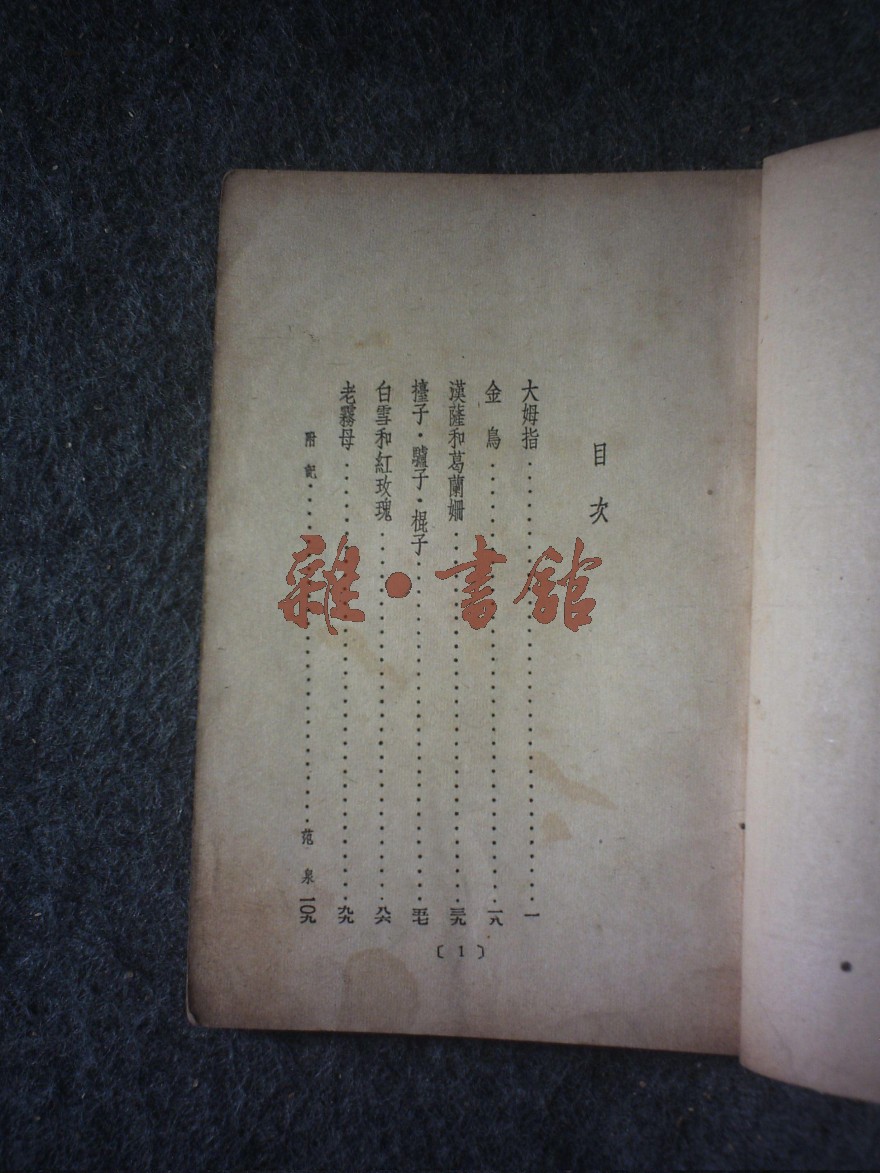 目次
大姆指·····一
金鳥·····一八
漢薩和葛蘭姍·····三九
檯子·驢子·棍子·····五七
白雪和紅玫瑰·····八六
老霧母·····九九
附記·····范泉 一〇九
〔1〕
雜·書館